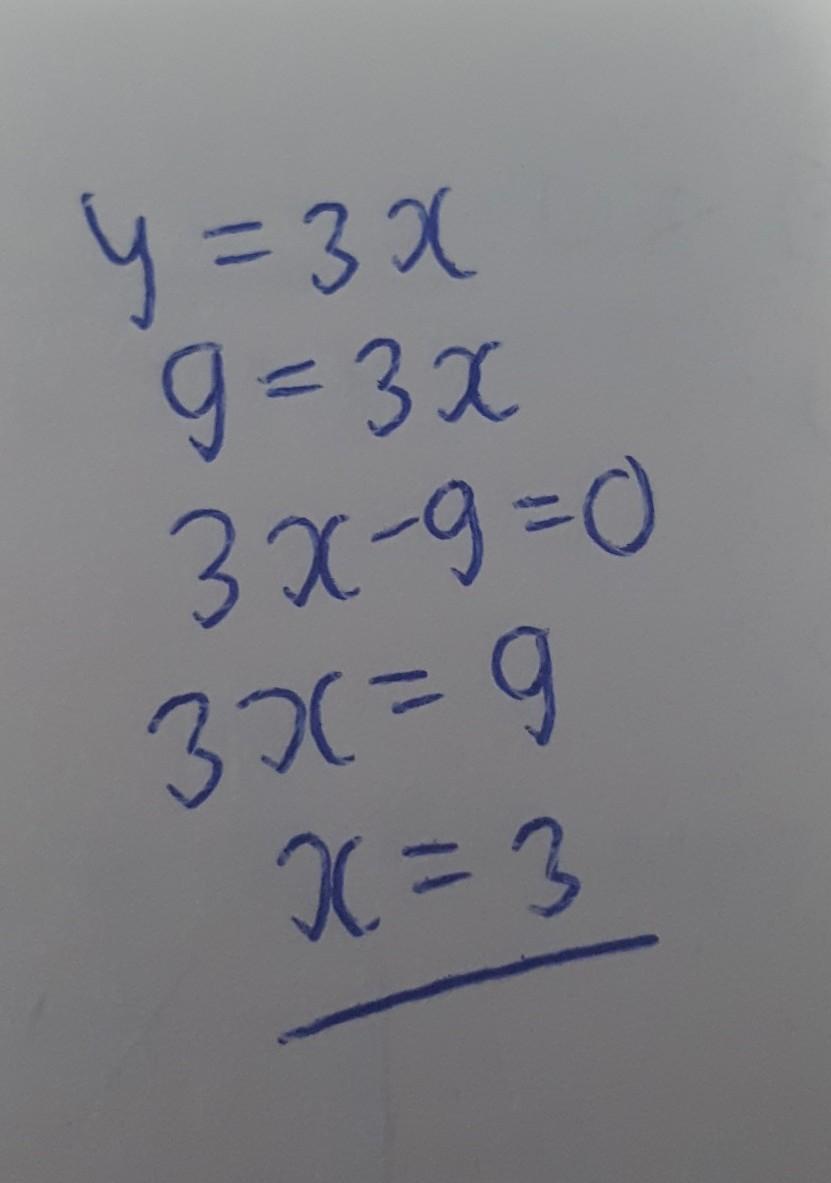 y = 3x
9 = 3x
3x - 9 = 0
3x = 9
x = 3